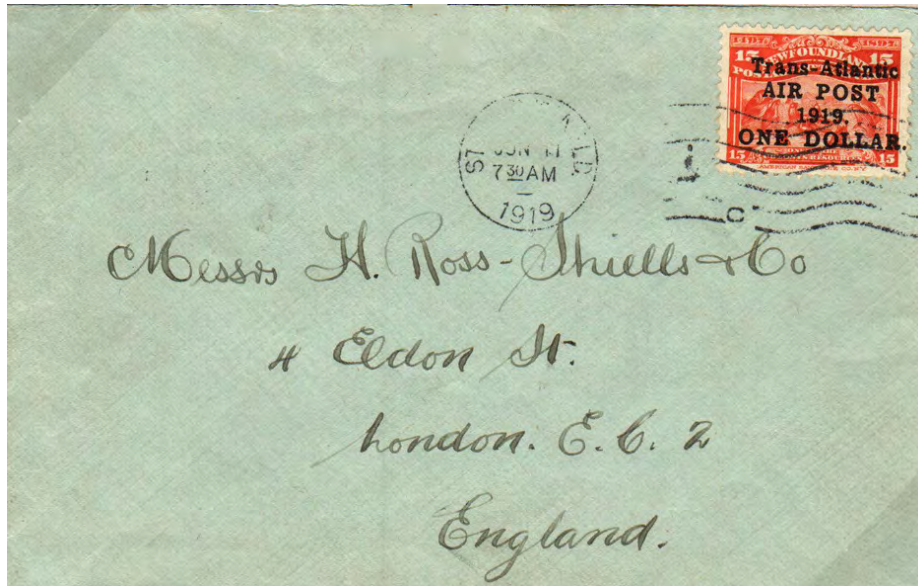 1497. 1897.
15 NEWFOUNDLAND 15
Trans-Atlantic
AIR POST
1919.
ONE DOLLAR.
15 15
JUN 11
7 30 AM
1919
Messrs H. Ross-Shiells & Co
4 Eldon St.
London. E. C. 2
England.